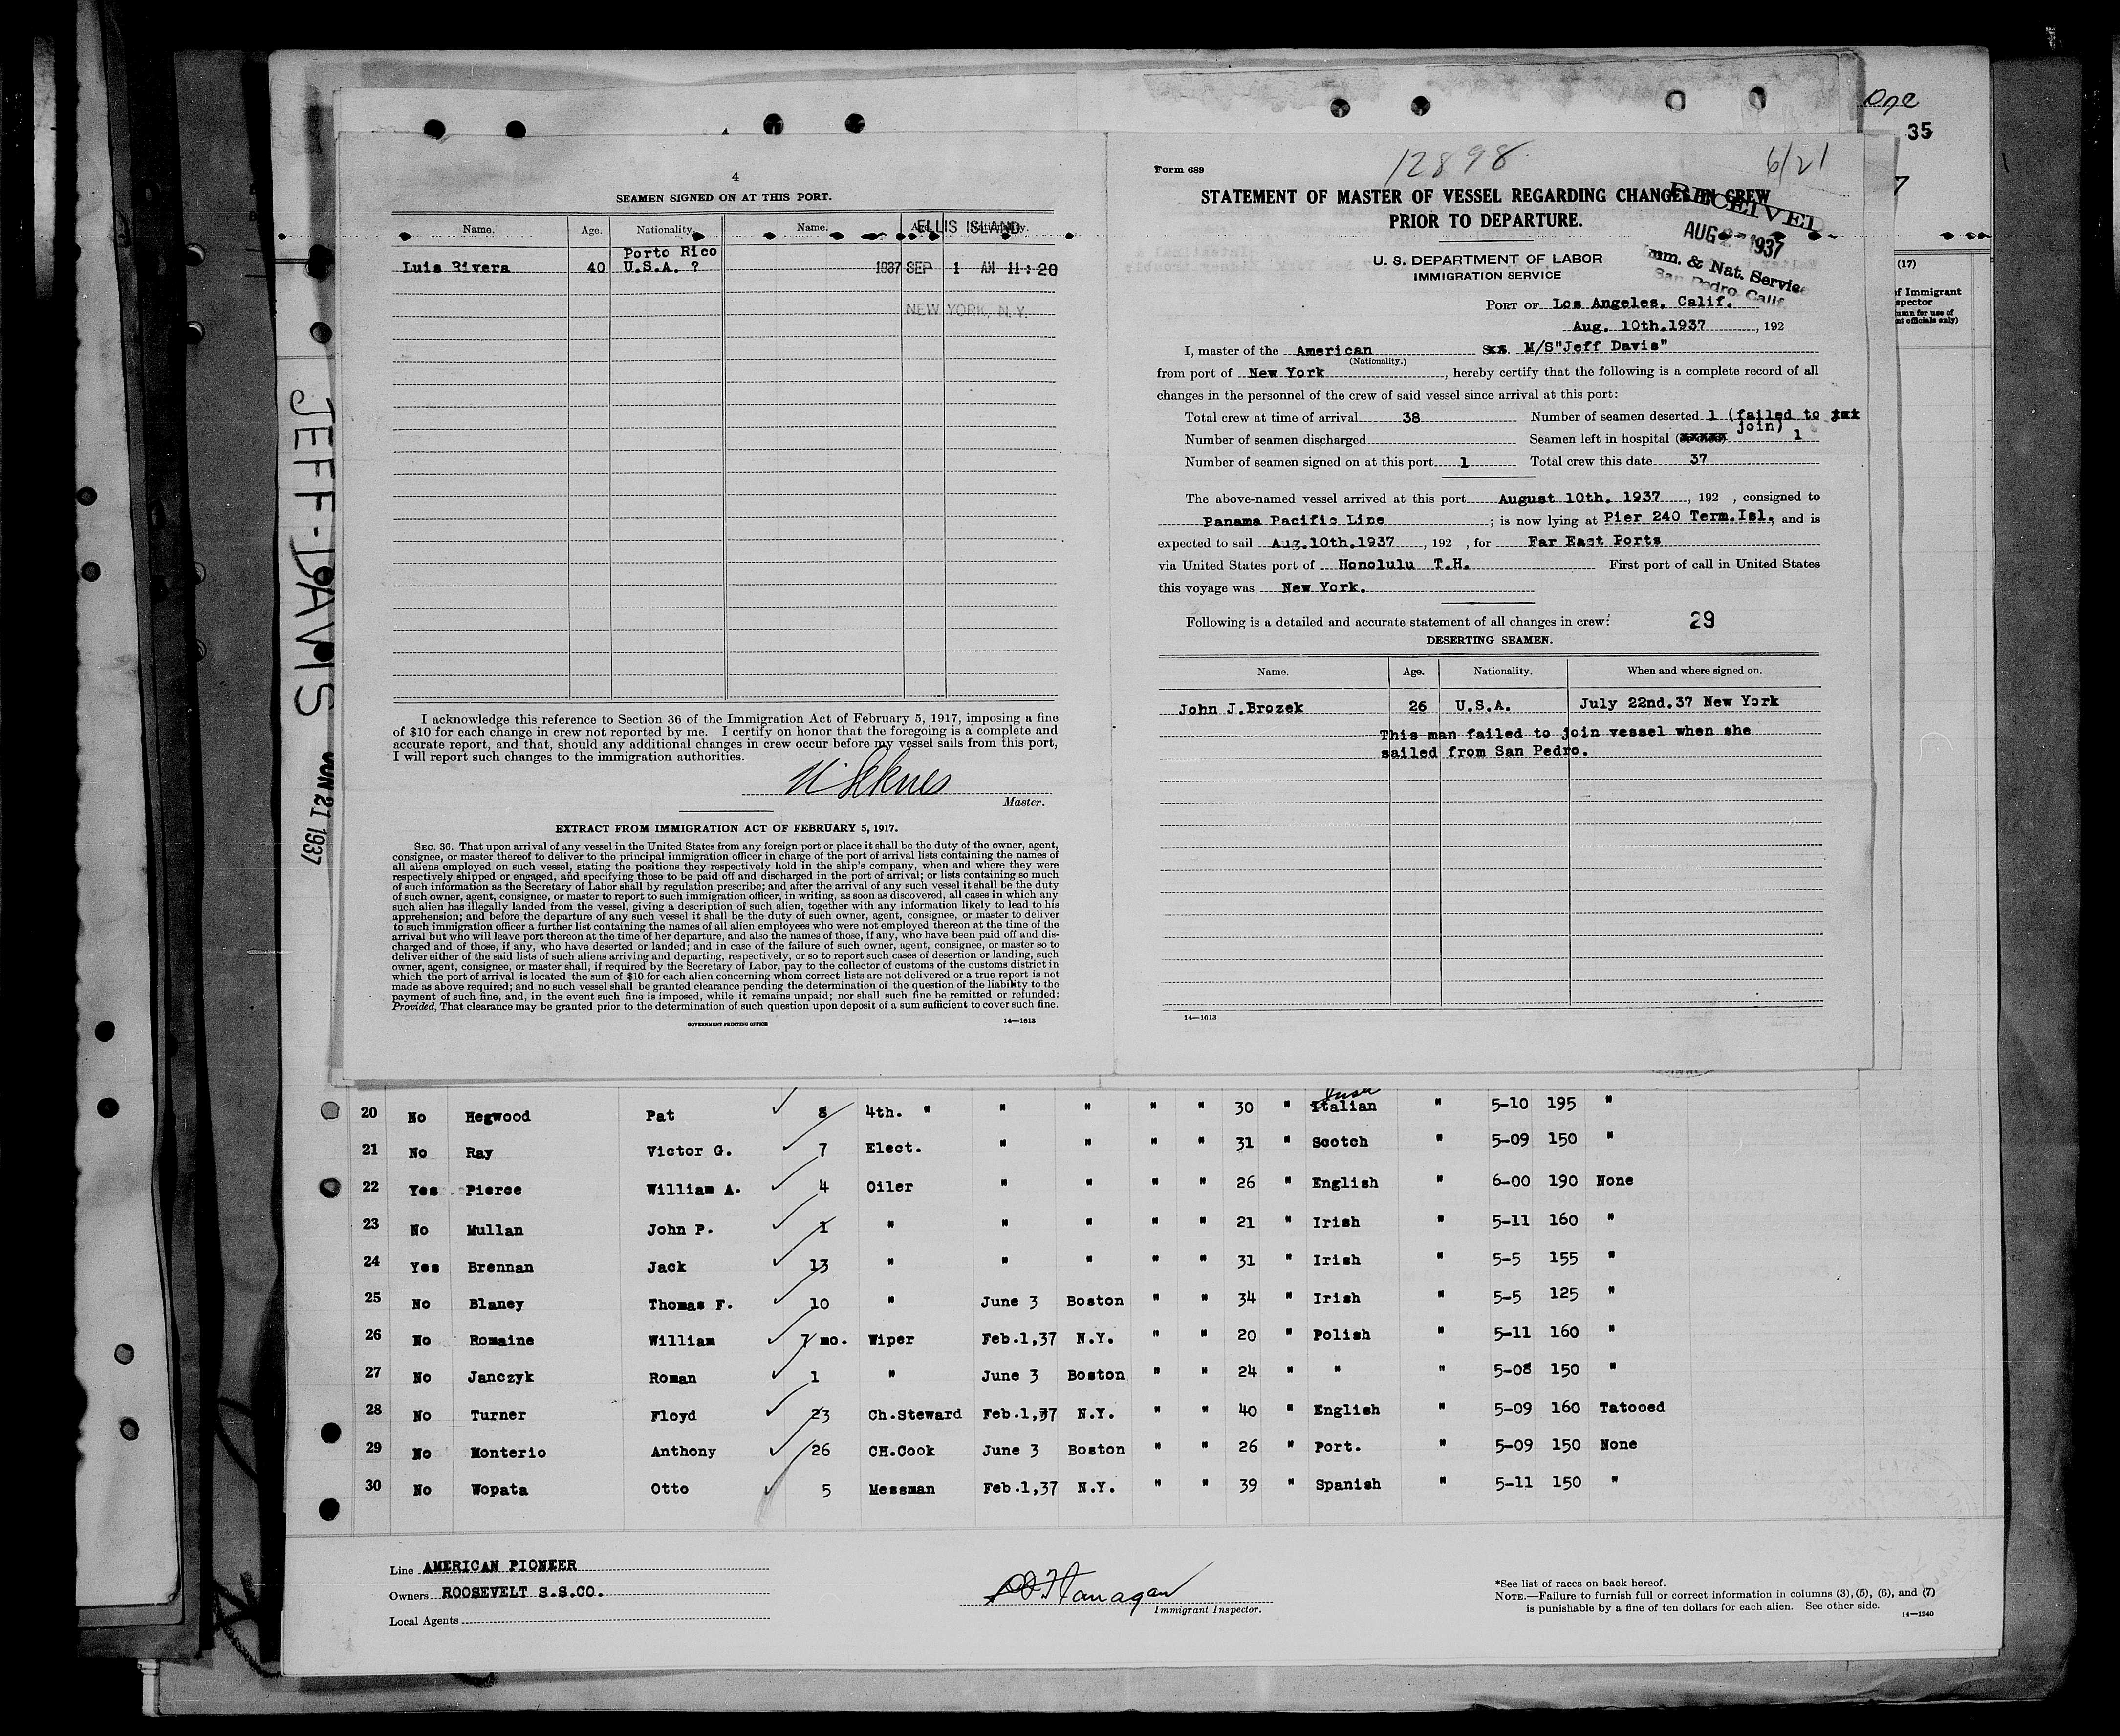 One
35
4
SEAMEN SIGNED ON AT THIS PORT.
Name. Age. Nationality. Name. Age. Nationality.
ELLIS ISLAND
Porto Rico
Luis Rivera 40 U.S.A. ? 1937 SEP 1 AM 11:20
NEW YORK, N.Y.
I acknowledge this reference to Section 36 of the Immigration Act of February 5, 1917, imposing a fine
of $10 for each change in crew not reported by me. I certify on honor that the foregoing is a complete and
accurate report, and that, should any additional changes in crew occur before my vessel sails from this port,
I will report such changes to the immigration authorities.
Master.
EXTRACT FROM IMMIGRATION ACT OF FEBRUARY 5, 1917.
SEC. 36. That upon arrival of any vessel in the United States from any foreign port or place it shall be the duty of the owner, agent,
consignee, or master thereof to deliver to the principal immigration officer in charge of the port of arrival lists containing the names of
all aliens employed on such vessel, stating the positions they respectively hold in the ship's company, when and where they were
respectively shipped or engaged, and specifying those to be paid off and discharged in the port of arrival; or lists containing so much
of such information as the Secretary of Labor shall by regulation prescribe; and after the arrival of any such vessel it shall be the duty
of such owner, agent, consignee, or master to report to such immigration officer, in writing, as soon as discovered, all cases in which any
such alien has illegally landed from the vessel, giving a description of such alien, together with any information likely to lead to his
apprehension; and before the departure of any such vessel it shall be the duty of such owner, agent, consignee, or master to deliver
to such immigration officer a further list containing the names of all alien employees who were not employed thereon at the time of the
arrival but who will leave port thereon at the time of her departure, and also the names of those, if any, who have been paid off and dis-
charged and of those, if any, who have deserted or landed; and in case of the failure of such owner, agent, consignee, or master so to
deliver either of the said lists of such aliens arriving and departing, respectively, or so to report such cases of desertion or landing, such
owner, agent, consignee, or master shall, if required by the Secretary of Labor, pay to the collector of customs of the customs district in
which the port of arrival is located the sum of $10 for each alien concerning whom correct lists are not delivered or a true report is not
made as above required; and no such vessel shall be granted clearance pending the determination of the question of the liability to the
payment of such fine, and, in the event such fine is imposed, while it remains unpaid; nor shall such fine be remitted or refunded:
Provided, That clearance may be granted prior to the determination of such question upon deposit of a sum sufficient to cover such fine.
GOVERNMENT PRINTING OFFICE 14—1613
Form 689 12898 6/21
STATEMENT OF MASTER OF VESSEL REGARDING CHANGES IN CREW
PRIOR TO DEPARTURE.
RECEIVED
AUG 27 1937
Imm. & Nat. Service
San Pedro, Calif.
U. S. DEPARTMENT OF LABOR
IMMIGRATION SERVICE
PORT OF Los Angeles, Calif.
Aug. 10th.1937, 192
I, master of the American S.S. M/S"Jeff Davis"
(Nationality.)
from port of New York, hereby certify that the following is a complete record of all
changes in the personnel of the crew of said vessel since arrival at this port:
Total crew at time of arrival 38 Number of seamen deserted 1 (failed to
join)
Number of seamen discharged Seamen left in hospital 1
Number of seamen signed on at this port 1 Total crew this date 37
The above-named vessel arrived at this port August 10th. 1937, 192 , consigned to
Panama Pacific Line; is now lying at Pier 240 Term.Isl. and is
expected to sail Aug.10th.1937, 192 , for Far East Ports
via United States port of Honolulu T.H. First port of call in United States
this voyage was New York.
Following is a detailed and accurate statement of all changes in crew: 29
DESERTING SEAMEN.
Name. Age. Nationality. When and where signed on.
John J.Brozek 26 U.S.A. July 22nd.37 New York
This man failed to join vessel when she
sailed from San Pedro.
14—1613
(17)
of Immigrant
JEFF-DAVIS
JUN 21 1937
20 No Hegwood Pat 8 4th. " " " " " 30 " Italian " 5-10 195 "
21 No Ray Victor G. 7 Elect. " " " " 31 " Scotch " 5-09 150 "
22 Yes Pierce William A. 4 Oiler " " " " 26 " English " 6-00 190 None
23 No Mullan John P. 1 " " " " " 21 " Irish " 5-11 160 "
24 Yes Brennan Jack 13 " " " " " 31 " Irish " 5-5 155 "
25 No Blaney Thomas F. 10 " June 3 Boston " " 34 " Irish " 5-5 125 "
26 No Romaine William 7 mo. Wiper Feb.1,37 N.Y. " " 20 " Polish " 5-11 160 "
27 No Janczyk Roman 1 " June 3 Boston " " 24 " " " 5-08 150 "
28 No Turner Floyd 23 Ch.Steward Feb.1,37 N.Y. " " 40 " English " 5-09 160 Tatooed
29 No Monterio Anthony 26 CH.Cook June 3 Boston " " 26 " Port. " 5-09 150 None
30 No Wopata Otto 5 Messman Feb.1,37 N.Y. " " 39 " Spanish " 5-11 150 "
Line AMERICAN PIONEER
Owners ROOSEVELT S.S.CO.
Local Agents
Flanagan
Immigrant Inspector.
*See list of races on back hereof.
NOTE.—Failure to furnish full or correct information in columns (3), (5), (6), and (7)
is punishable by a fine of ten dollars for each alien. See other side.
14—1240